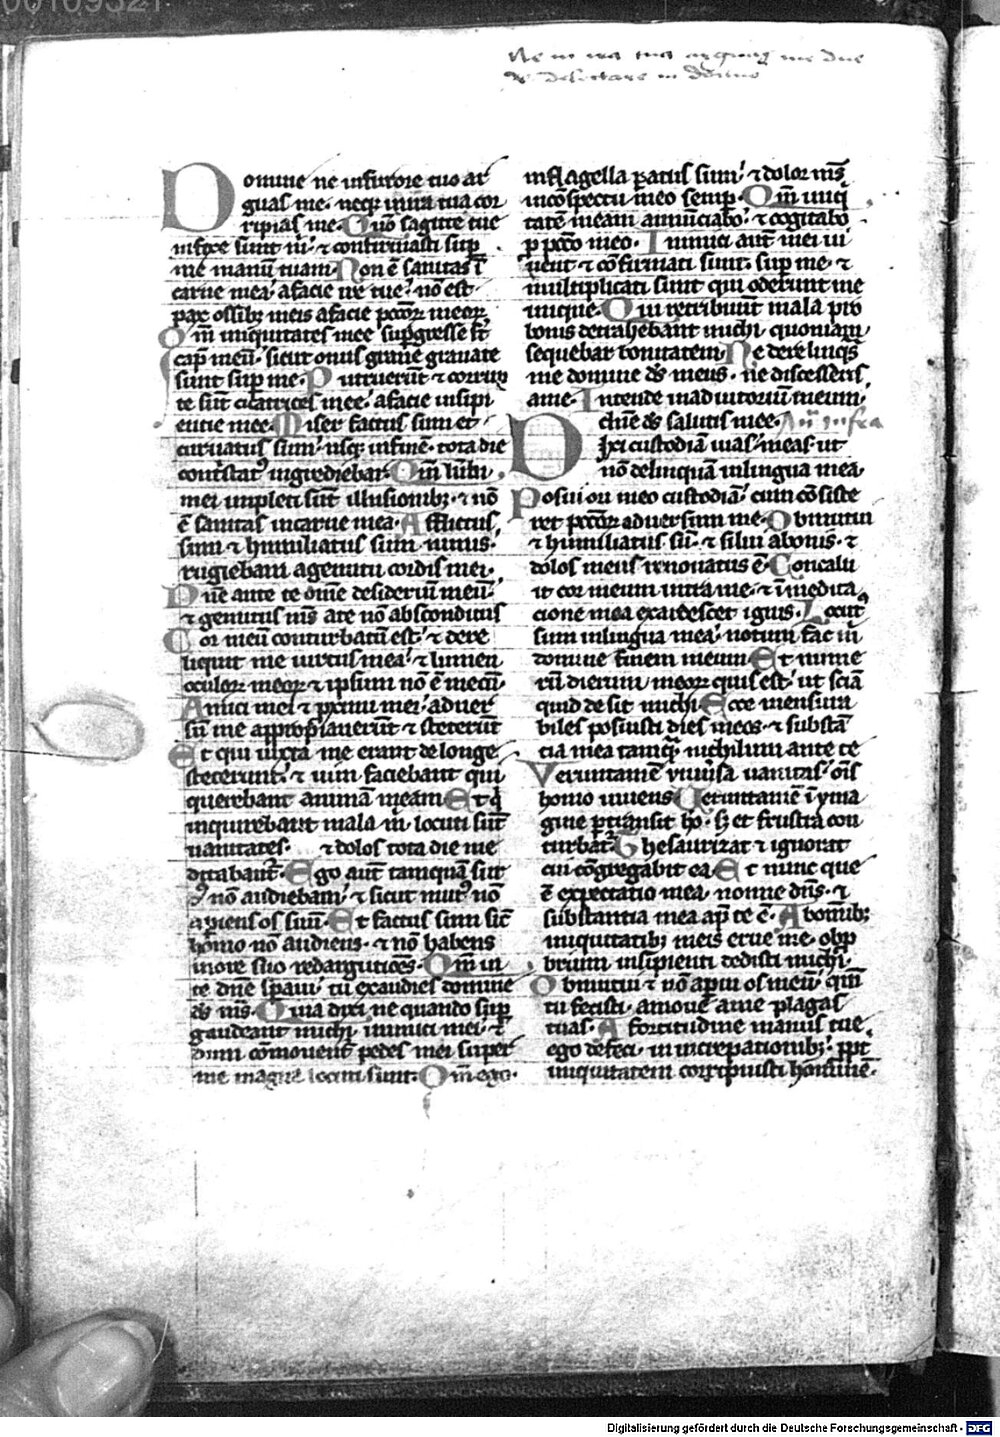 Ne in ira tua arguas me dne
Domine ne infurore tuo ar
guas me. neq; inira tua cor
ripias me. Qm̄ sagitte tue
infixe sunt m̄. ⁊ confirmasti sup̄
me manū tuam. Non ē sanitas ī
carne mea. afacie ire tue. nō est
pax ossib; meis afacie pccōꝝ meoꝝ
Qm̄ iniquitates mee sup̄gresse st̄
cap̄ meū. sicut onus graue grauate
sunt sup̄ me. Putruerūt ⁊ corrup
te sūt cicatrices mee. afacie insipi
entie mee. Miser factus sum et
curuatus sum. usq; infinē. tota die
cont̄stat᷒ ingrediebar. Qm̄ lūbi
mei impleti sūt illusionib; ⁊ nō
ē sanitas incarne mea. Afflictus
sum ⁊ humiliatus sum nimis.
rugiebam agemitu cordis mei.
Dne ante te om̄e desideriū meū.
⁊ gemitus ms̄ ate nō absconditus
Cor meū conturbatū est. ⁊ dere
liquit me uirtus mea. ⁊ lumen
oculoꝝ meoꝝ ⁊ ipsum nō ē mecū.
Amici mei ⁊ pximi mei. aduer
sū me appropianerūt ⁊ steterūt
Et qui iuxta me erant de longe
steterunt. ⁊ uim faciebant qui
querebant animā meam. Et q̄
inquirebant mala m̄. locuti sūt
uanitates. ⁊ dolos tota die me
ditabant᷒. Ego aut̄ tamquā sur
d᷒ nō audiebam. ⁊ sicut mut᷒ nō
apiens os suū. Et factus sum sic̄
homo nō audiens. ⁊ nō habens
inore suo redargutiōes. Qm̄ in
te dn̄e sp̄aui. tu exaudies domine
ds̄ ms̄. Quia dixi. ne quando sup̄
gaudeant michi. inimici mei. ⁊
dum cōmouent᷒ pedes mei super
me magna locuti sunt. Qm̄ ego.
inflagella paratus sum. ⁊ dolor ms̄
incōspectu meo semp̄. Qm̄ iniq̄
tatē meam annunciabo. ⁊ cogitabo
p̱ pccō meo. Inimici aut̄ mei ui
uent ⁊ cōfirmati sunt. sup̄ me. ⁊
multiplicati sunt qui oderunt me
inique. Qui retribuūt mala pro
bonis detrahebant michi. quoniam
sequebar bonitatem. Ne derelinq̄s
me domine ds̄ meus. ne discesseris
ame. Intende inadiutoriū meum.
dn̄e ds̄ salutis mee.
Dixi custodiā uias meas. ut
nō delinquā inlingua mea.
Posui ori meo custodiā. cum cōsiste
ret pccōr aduersum me. Obmutui
⁊ humiliatus sū. ⁊ silui abonis. ⁊
dolos meus renouatus ē. Concalu
it cor meum intra me. ⁊ īmedita
cione mea exardescet ignis. Locut᷒
sum inlingua mea. notum fac m̄
domine finem meum. Et nume
rū dierum meoꝝ quis est. ut sciā
quid desit michi. Ecce mensura
biles posuisti dies meos. ⁊ substā
cia mea tamq̄ nichilum ante te
Veruntamē uniūsa uanitas. oīs
homo uiuens. Veruntamē ī yma
gine p̱transit hō. sꝫ et frustra con
turbat᷒. Thesaurizat ⁊ ignorat
cui cōgregabit ea. Et nunc que
ē expectatio mea. nonne dn̄s. ⁊
substantia mea ap̄ te ē. Abomib;
iniquitatib; meis erue me. obp̄
brium insipienti dedisti michi.
Obmutui ⁊ nō apui os meū. qm̄
tu fecisti. amoue ame plagas
tuas. A fortitudine manus tue
ego defeci. in increpationib;. ppt̄
iniquitatem corripuisti hominē.
Digitalisierung gefördert durch die Deutsche Forschungsgemeinschaft - DFG